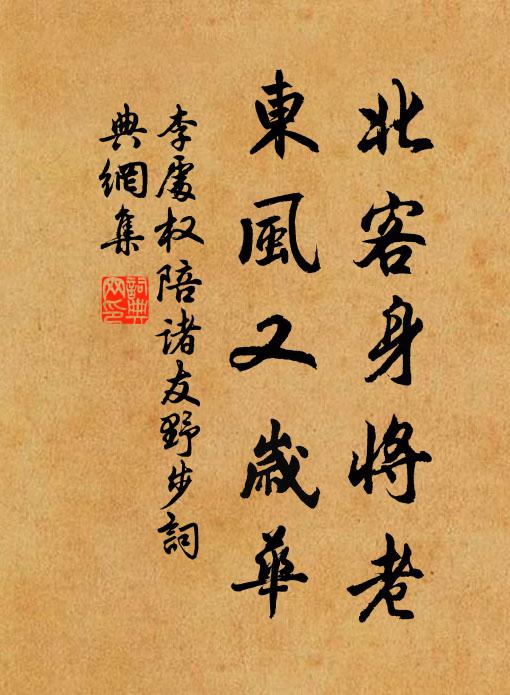 北客身將老
東風又歲華
李處权陪诸友野步詞
典網集
詞典網印